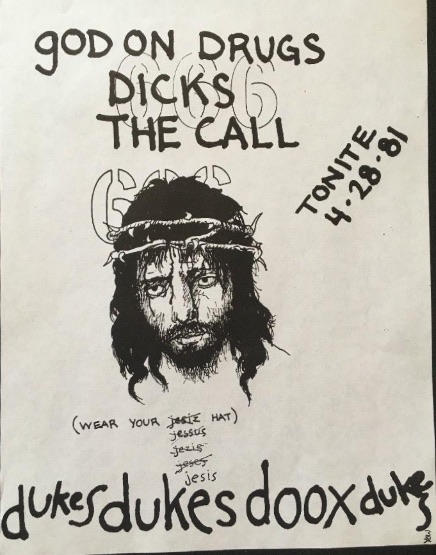 gOD ON DRUGS
666
DICKS
THE CALL
TONITE
4·28·81
666
(WEAR YOUR jesiz HAT)
jessus
jezis
jeses
jesis
dukes dukes doox dukes